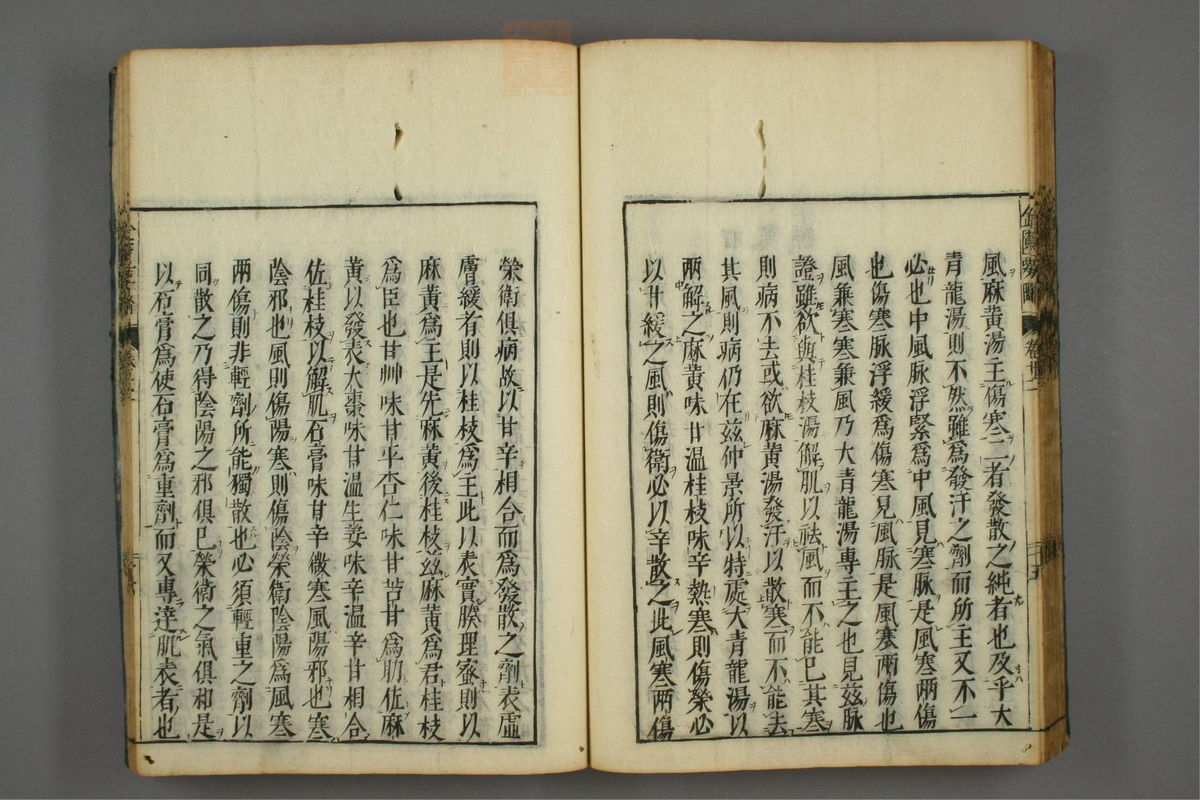 風麻黄湯主傷寒二者發散之純者也及乎大
青龍湯則不然雖爲發汗之劑而所主又不一
必也中風脉浮緊爲中風見寒脉是風寒兩傷
也傷寒脉浮緩爲傷寒見風脉是風寒兩傷也
風兼寒寒兼風乃大青龍湯專主之也見玆脉
證雖欲與桂枝湯解肌以祛風而不能已其寒
則病不去或欲麻黄湯發汗以散寒而不能去
其風則病仍在玆仲景所以特處大青龍湯以
兩解之麻黄味甘温桂枝味辛熱寒則傷榮必
以甘緩之風則傷衛必以辛散之此風寒兩傷
榮衛俱病故以甘辛相合而爲發散之劑表虚
膚緩者則以桂枝爲主此以表實腠理密則以
麻黄爲主是先麻黄後桂枝玆麻黄爲君桂枝
爲臣也甘艸味甘平杏仁味甘苦甘爲助佐麻
黄以發表大棗味甘温生姜味辛温辛甘相合
佐桂枝以解肌石膏味甘辛微寒風陽邪也寒
陰邪也風則傷陽寒則傷陰榮衛陰陽爲風寒
兩傷則非輕劑所能獨散也必須輕重之劑以
同散之乃得陰陽之邪俱已榮衛之氣俱和是
以石膏爲使石膏爲重劑而又專達肌表者也